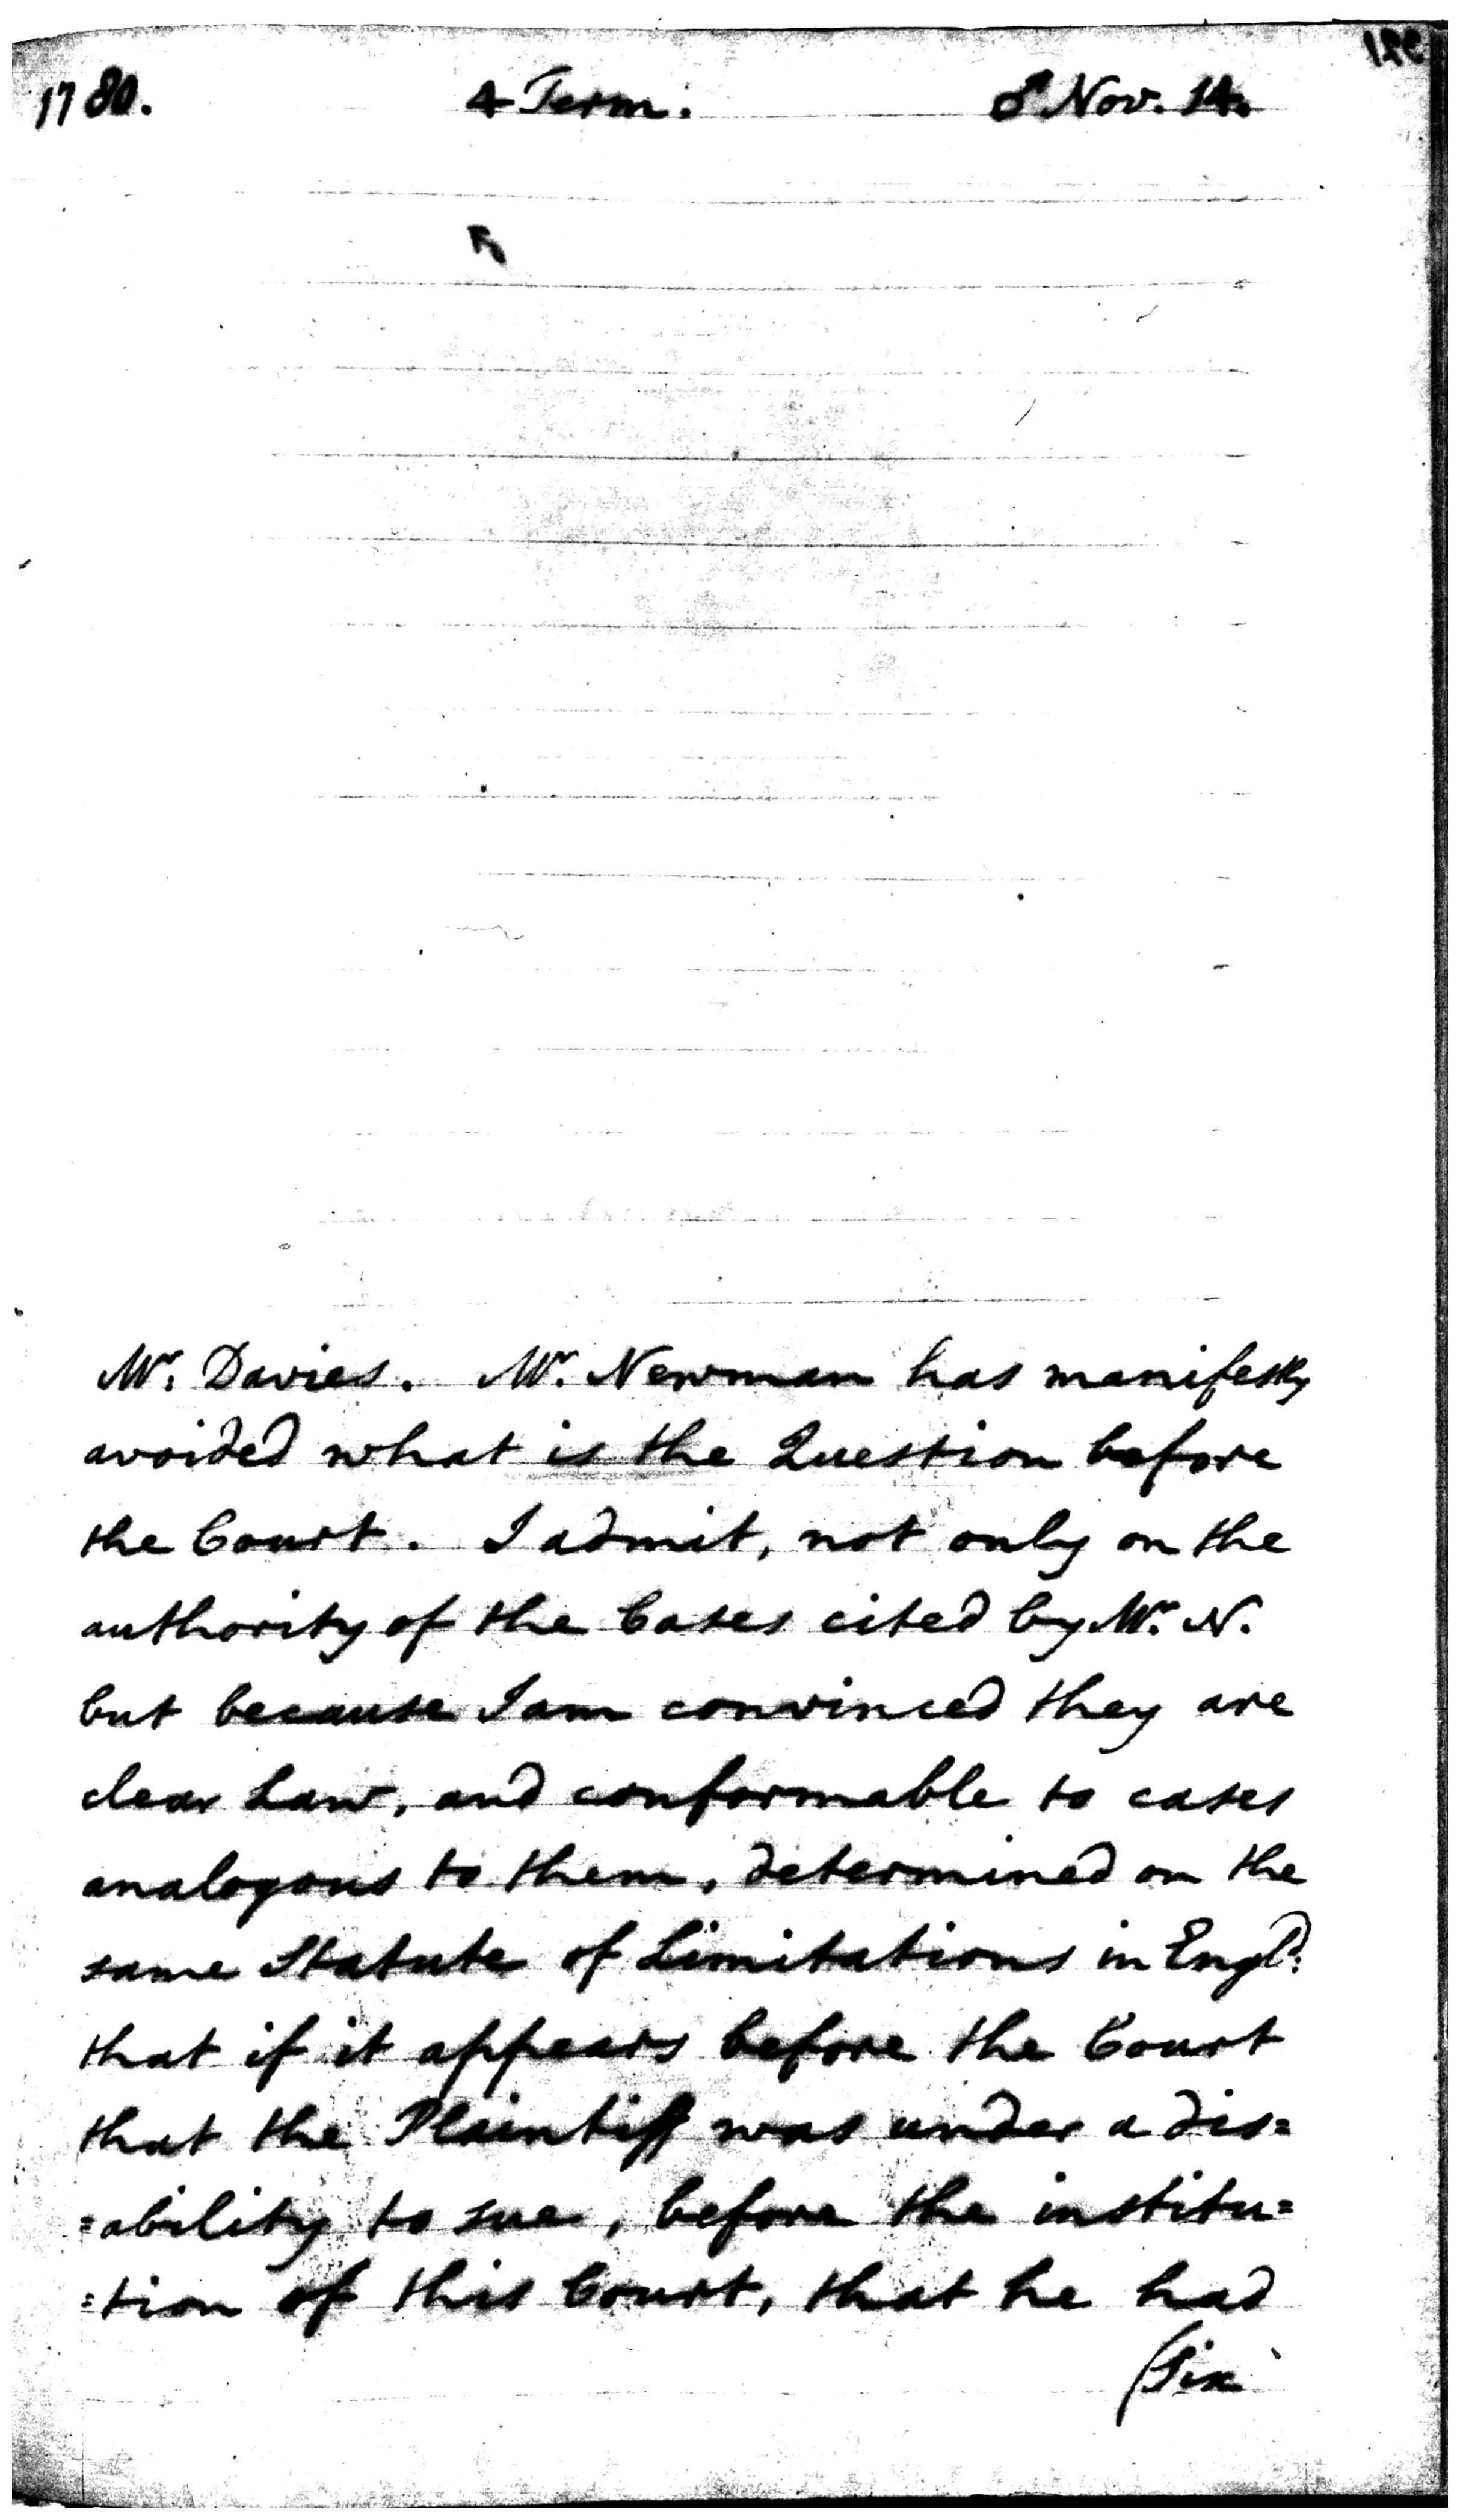 1780. 4 Term. ♂ Nov. 14.
Mr. Davies. Mr. Newman has manifestly
avoided what is the Question before
the Court. I admit, not only on the
authority of the Cases cited by Mr. N.
but because I am convinced they are
clear Law, and conformable to cases
analogous to them, determined on the
same Statute of Limitations in Engld.
that if it appears before the Court
that the Plaintiff was under a dis=
=ability to sue, before the institu=
=tion of this Court, that he had
(Six